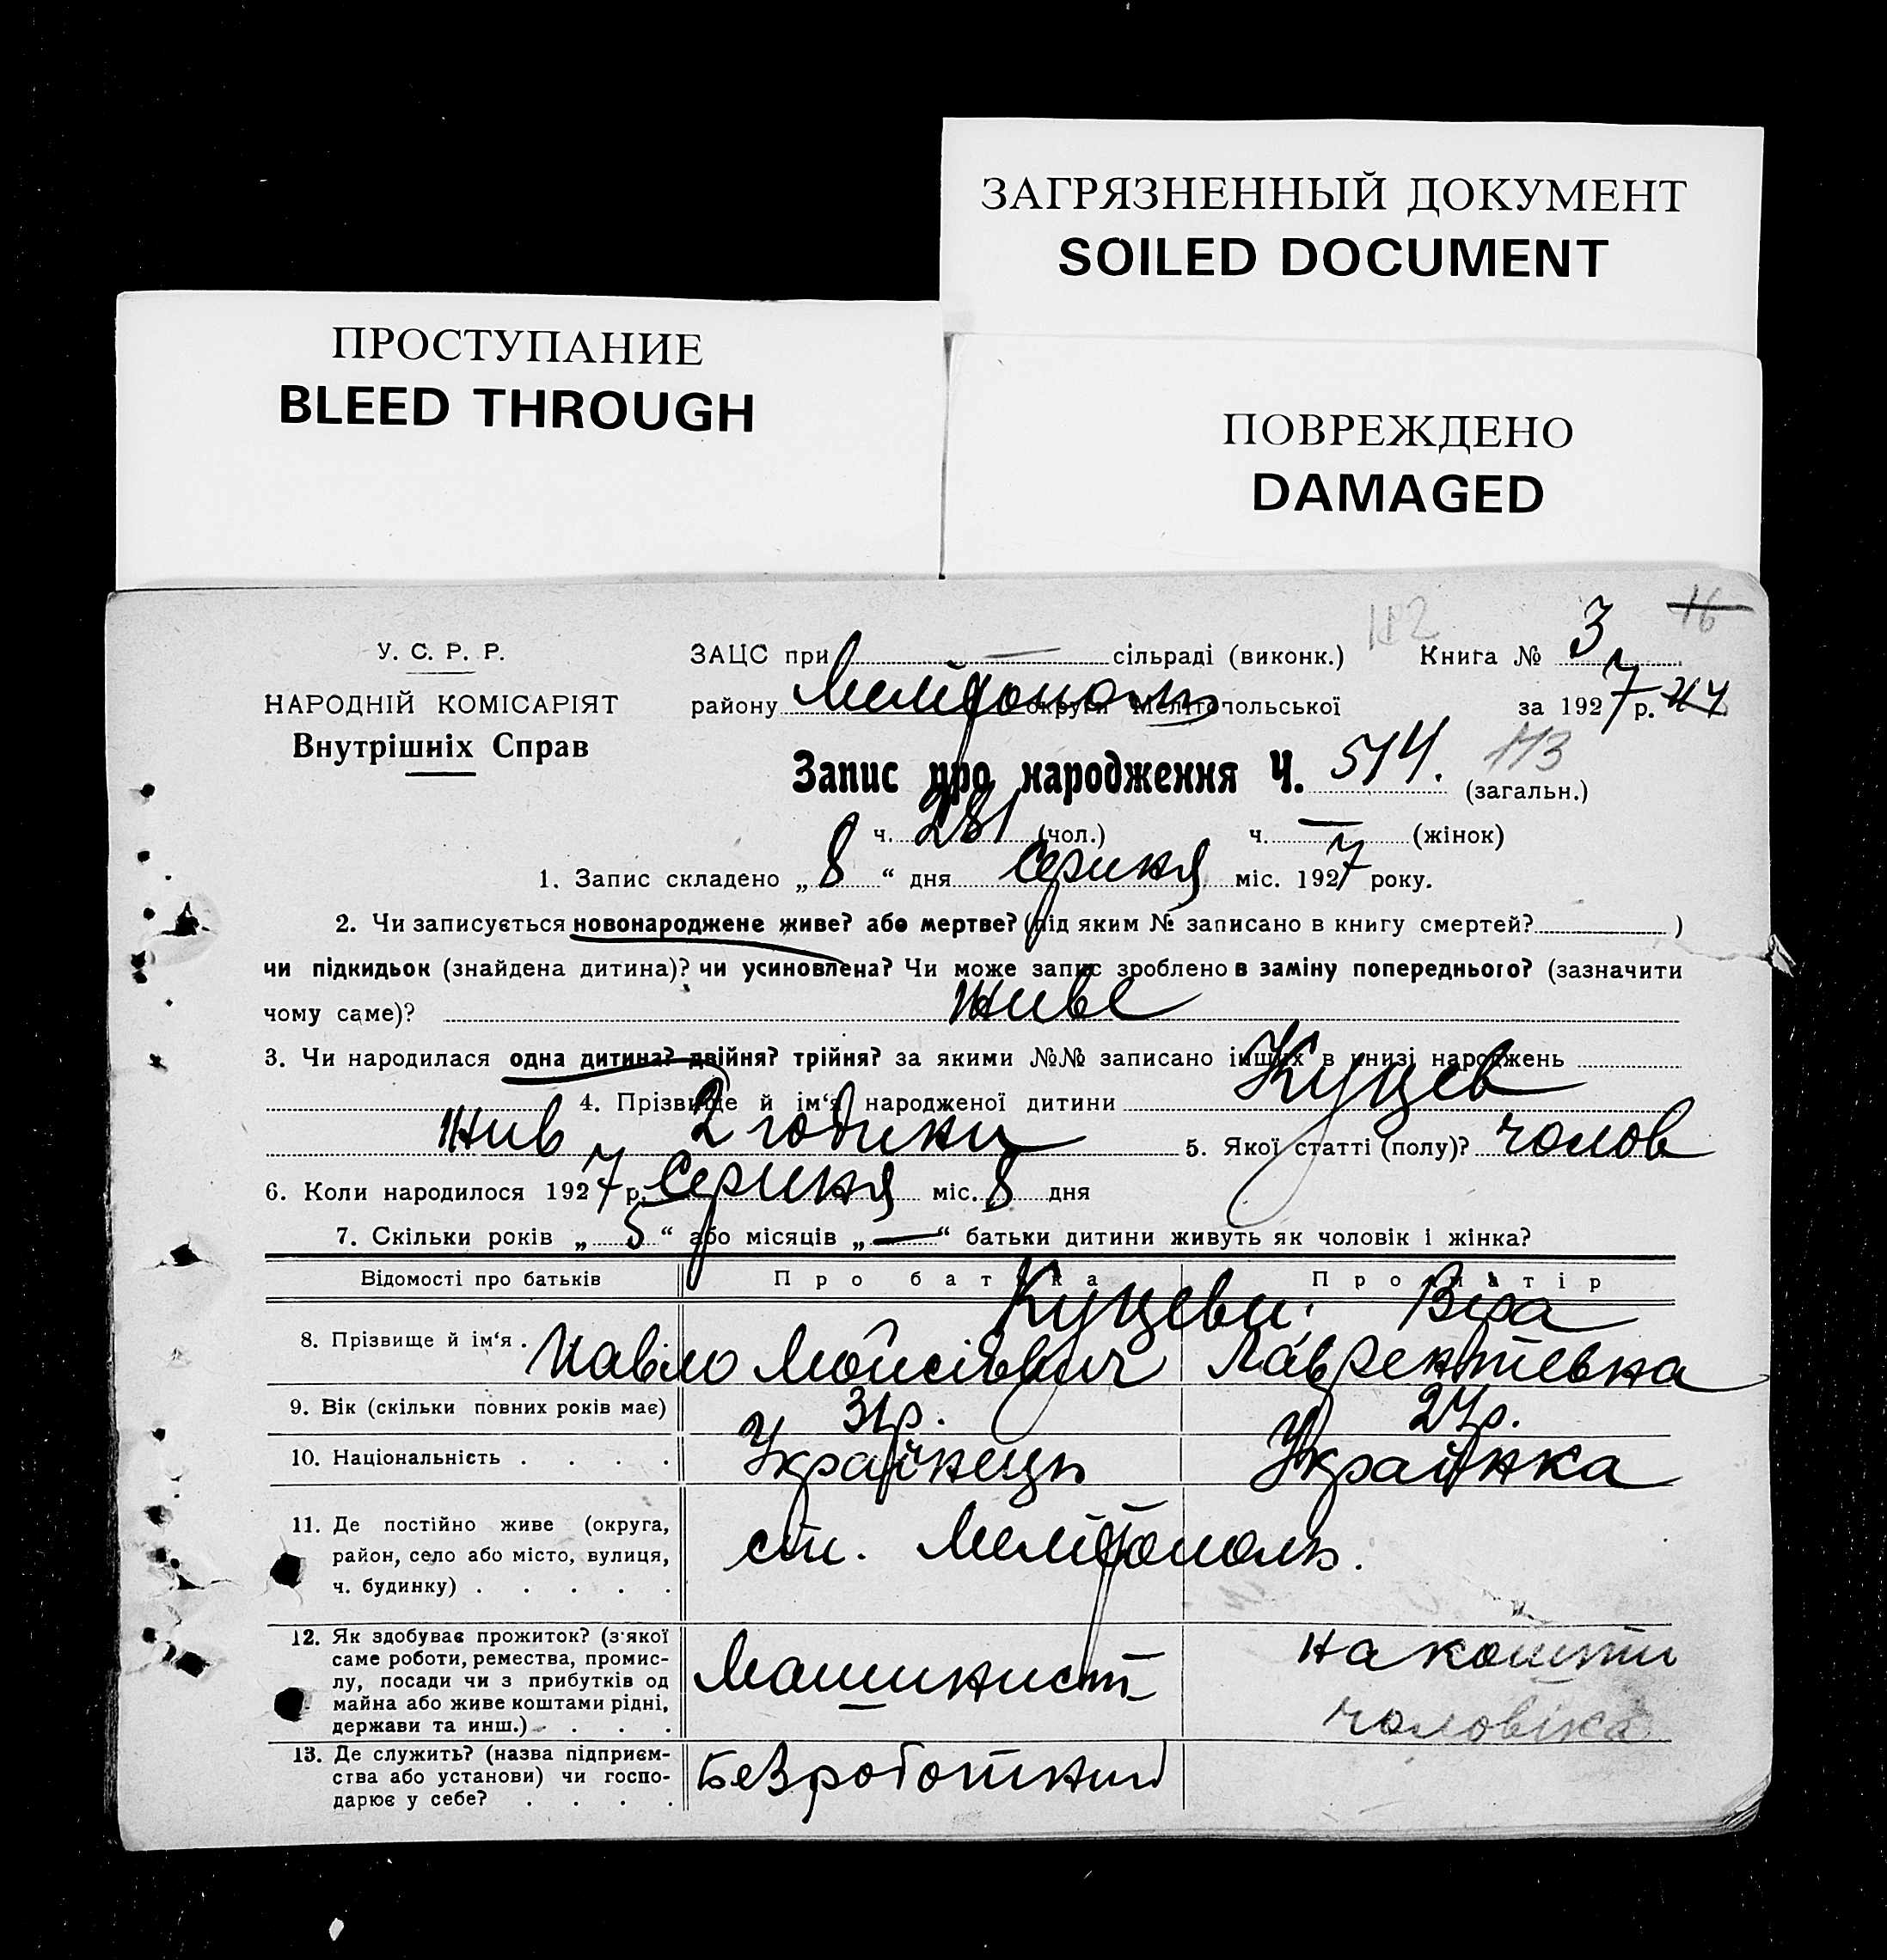 ЗАГРЯЗНЕННЫЙ ДОКУМЕНТ
SOILED DOCUMENT
ПРОСТУПАНИЕ
BLEED THROUGH
ПОВРЕЖДЕНО
DAMAGED
112 16
У. С. Р. Р.
НАРОДНІЙ КОМІСАРІЯТ
Внутрішніх Справ
ЗАЦС при — сільраді (виконк.) Книга № 3
району Мелітополь округи Мелітопольської за 1927 р.
Запис про народження Ч. 514. 113 (загальн.)
ч. 281 (чол.) ч. — (жінок)
1. Запис складено „ 8 “ дня Серпня міс. 1927 року.
2. Чи записується новонароджене живе? або мертве? (під яким № записано в книгу смертей? )
чи підкидьок (знайдена дитина)? чи усиновлена? Чи може запис зроблено в заміну попереднього? (зазначити
чому саме)? живе
3. Чи народилася одна дитина? двійня? трійня? за якими №№ записано інших в книзі народжень
4. Прізвище й ім‘я народженої дитини Куцев
жив 2 години 5. Якої статті (полу)? чолов
6. Коли народилося 1927 р. Серпня міс. 8 дня
7. Скільки років „ 5 “ або місяців „ — “ батьки дитини живуть як чоловік і жінка?
Відомості про батьків Про батька Про матір
Куцеви: Віра
8. Прізвище й ім‘я . Павло Мойсієвич Лаврентієвна
9. Вік (скільки повних років має) 31р. 27р.
10. Національність . . . . Українець Українка
11. Де постійно живе (округа,
район, село або місто, вулиця,
ч. будинку) . . . . . ст. Мелітополь.
12. Як здобуває прожиток? (з якої
саме роботи, ремества, промис-
лу, посади чи з прибутків од
майна або живе коштами рідні,
держави та инш.) . . . . Машинист на кошти
чоловіка
13. Де служить? (назва підприєм-
ства або установи) чи госпо-
дарює у себе? . . . . Безработний